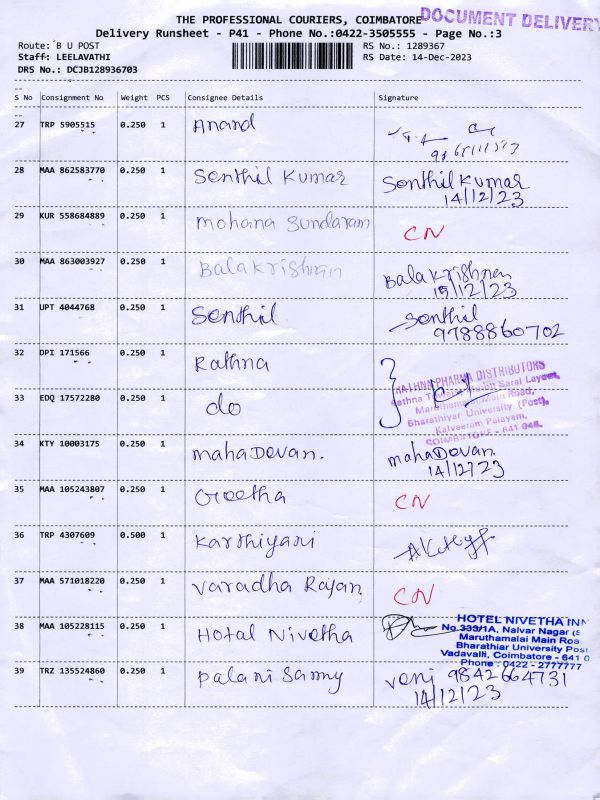 THE PROFESSIONAL COURIERS, COIMBATORE
DOCUMENT DELIVERY
Delivery Runsheet - P41 - Phone No.:0422-3505555 - Page No.:3
Route: B U POST
RS No.: 1289367
Staff: LEELAVATHI
RS Date: 14-Dec-2023
DRS No.: DCJB128936703
S No Consignment No Weight PCS Consignee Details Signature
27 TRP 5905515 0.250 1 Anand
28 MAA 862583770 0.250 1 Senthil Kumar Senthil Kumar
14/12/23
29 KUR 558684889 0.250 1 Mohana Sundaram CN
30 MAA 863003927 0.250 1 Balakrishnan Balakrishnan
15/12/23
31 UPT 4044768 0.250 1 Senthil Senthil
9788860702
32 DPI 171566 0.250 1 Rathna
RATHNA PHARMA DISTRIBUTORS
Saral Layout,
Maruthamalai Main Road,
33 EDQ 17572280 0.250 1 do
Bharathiyar University (Post),
Kalveeram Palayam,
COIMBATORE - 641 046.
34 KTY 10003175 0.250 1 mahaDevan. mahaDevan
14/12/23
35 MAA 105243807 0.250 1 Geetha CN
36 TRP 4307609 0.500 1 Karthiyani
37 MAA 571018220 0.250 1 Varadha Rajan CN
38 MAA 105228115 0.250 1 Hotal Nivetha
HOTEL NIVETHA INN
No.333/1A, Nalvar Nagar
Maruthamalai Main Roa
Bharathiar University Post
Vadavalli, Coimbatore - 641 0
Phone : 0422 - 2777777
39 TRZ 135524860 0.250 1 Palani Samy veni 9842664731
14/12/23